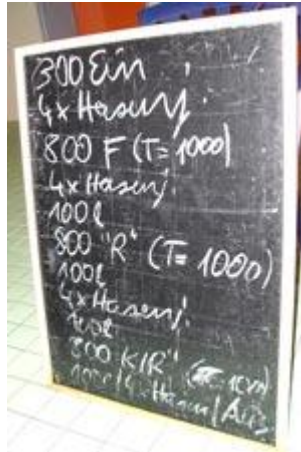 300 Ein
4x Hasenj.
800 F (T=1000)
4x Hasenj.
100l
800 "R" (T=1000)
100l
4x Hasenj.
100l
800 K/R"
100l/4xHasenj/Aus